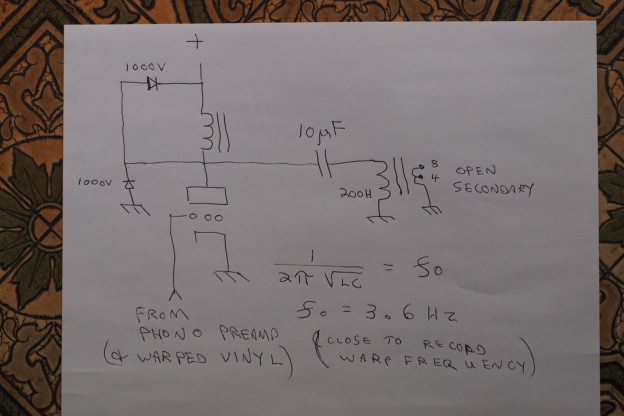 +
1000V
10µF
1000V
200H
8
4
OPEN
SECONDARY
1 / 2π √LC = fo
fo = 3.6 Hz
FROM
PHONO PREAMP
(& WARPED VINYL)
(CLOSE TO RECORD
WARP FREQUENCY)